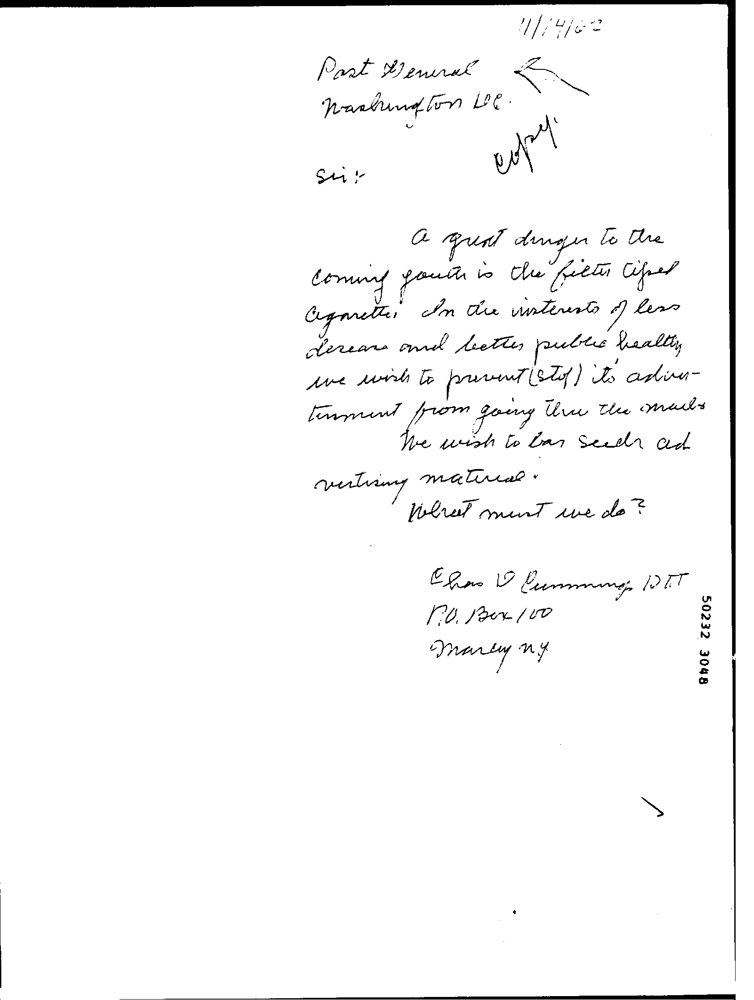 11/14/62
Post General
Washington D.C.
copy.
Sir:-
A great danger to the
coming youth is the filter tiped
Cigarette. In the insterests of less
desease and better public healthy
we wish to prevent (stop) its adver-
tinment from going thru the mails
We wish to bar such ad
vertising material.
What must we do?
Chas D Cummings
P.O. Box 100
Marcy N.Y
50232 3048